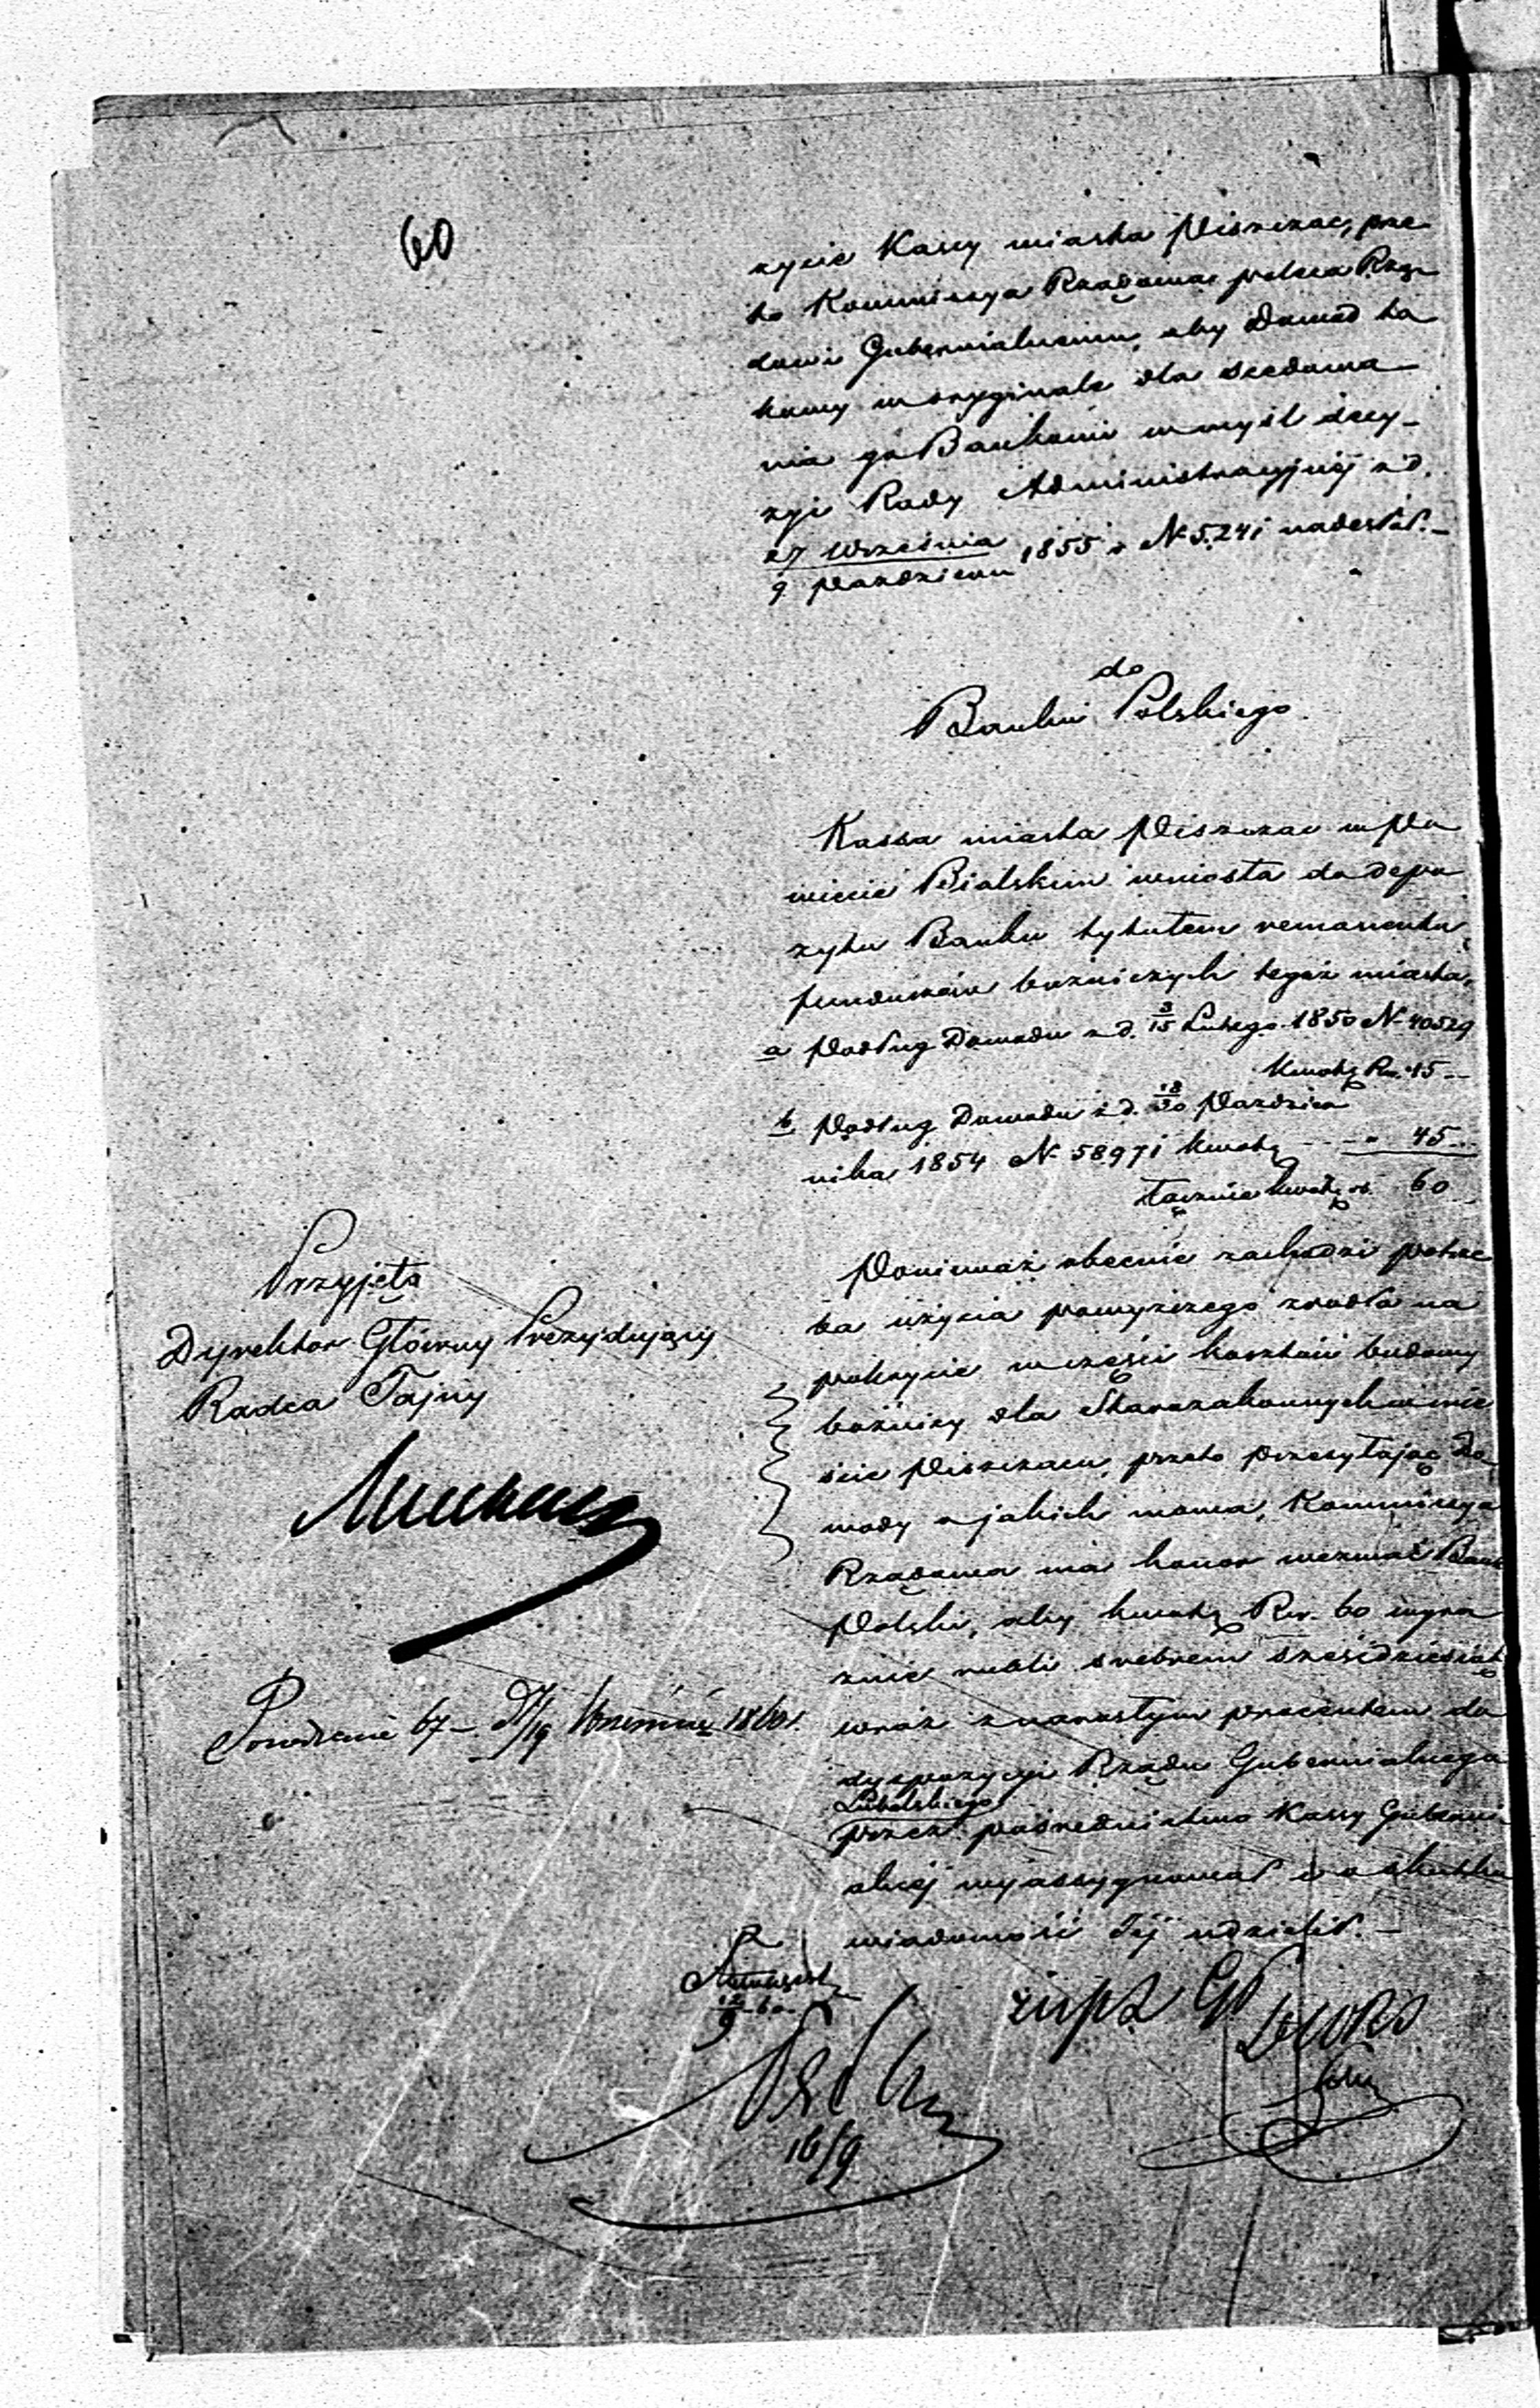 60
życie Kassy miasta Piszczac, prze
to Kommissya Rządowa poleca Rzą
dowi Gubernialnemu, aby Dowód ta
kowy w oryginale dla
nia go Bankowi w myśl decy-
zyi Rady Administracyjnéj z d.
27 Września
9 Paździer: 1855 r N 5,241 nadesłał.-
do
Banku Polskiego
Kassa miasta Piszczac w Po
wiecie Bialskim wniosła do depo
zytu Banku tytułem remanentu
funduszów bożniczych tegoż miasta,
a Podług Dowodu z d. 3/15 Lutego 1850 N 40529
kwotę Rs. 15 -
b Podług Dowodu z d. 18/30 Paździer
nika 1854 N 58971 kwotę - - - " 45 -
łącznie kwotę rs. 60
Ponieważ obecnie zachodzi potrze
ba użycia powyższego źródła na
pokrycie w części kosztów budowy
bożnicy dla Starozakonnych w mie
ście Piszczacu, przeto przesyłając Do
wody o jakich mowa, Kommissya
Rządowa ma honor wezwać Bank
Polski, aby kwotę Rs. 60 wyra
źnie rubli srebrem sześćdziesiąt
wraz z narosłym procentem do
dyspozycyi Rządu Gubernialnego
Lubelskiego
przez pośrednictwo Kassy Guberni
alnéj wyassygnował i o skutku
wiadomość Jéj udzielił. -
Przyjęta
Dyrektor Główny Prezydujący
Radca Tajny
Września 1860 r.
16/9